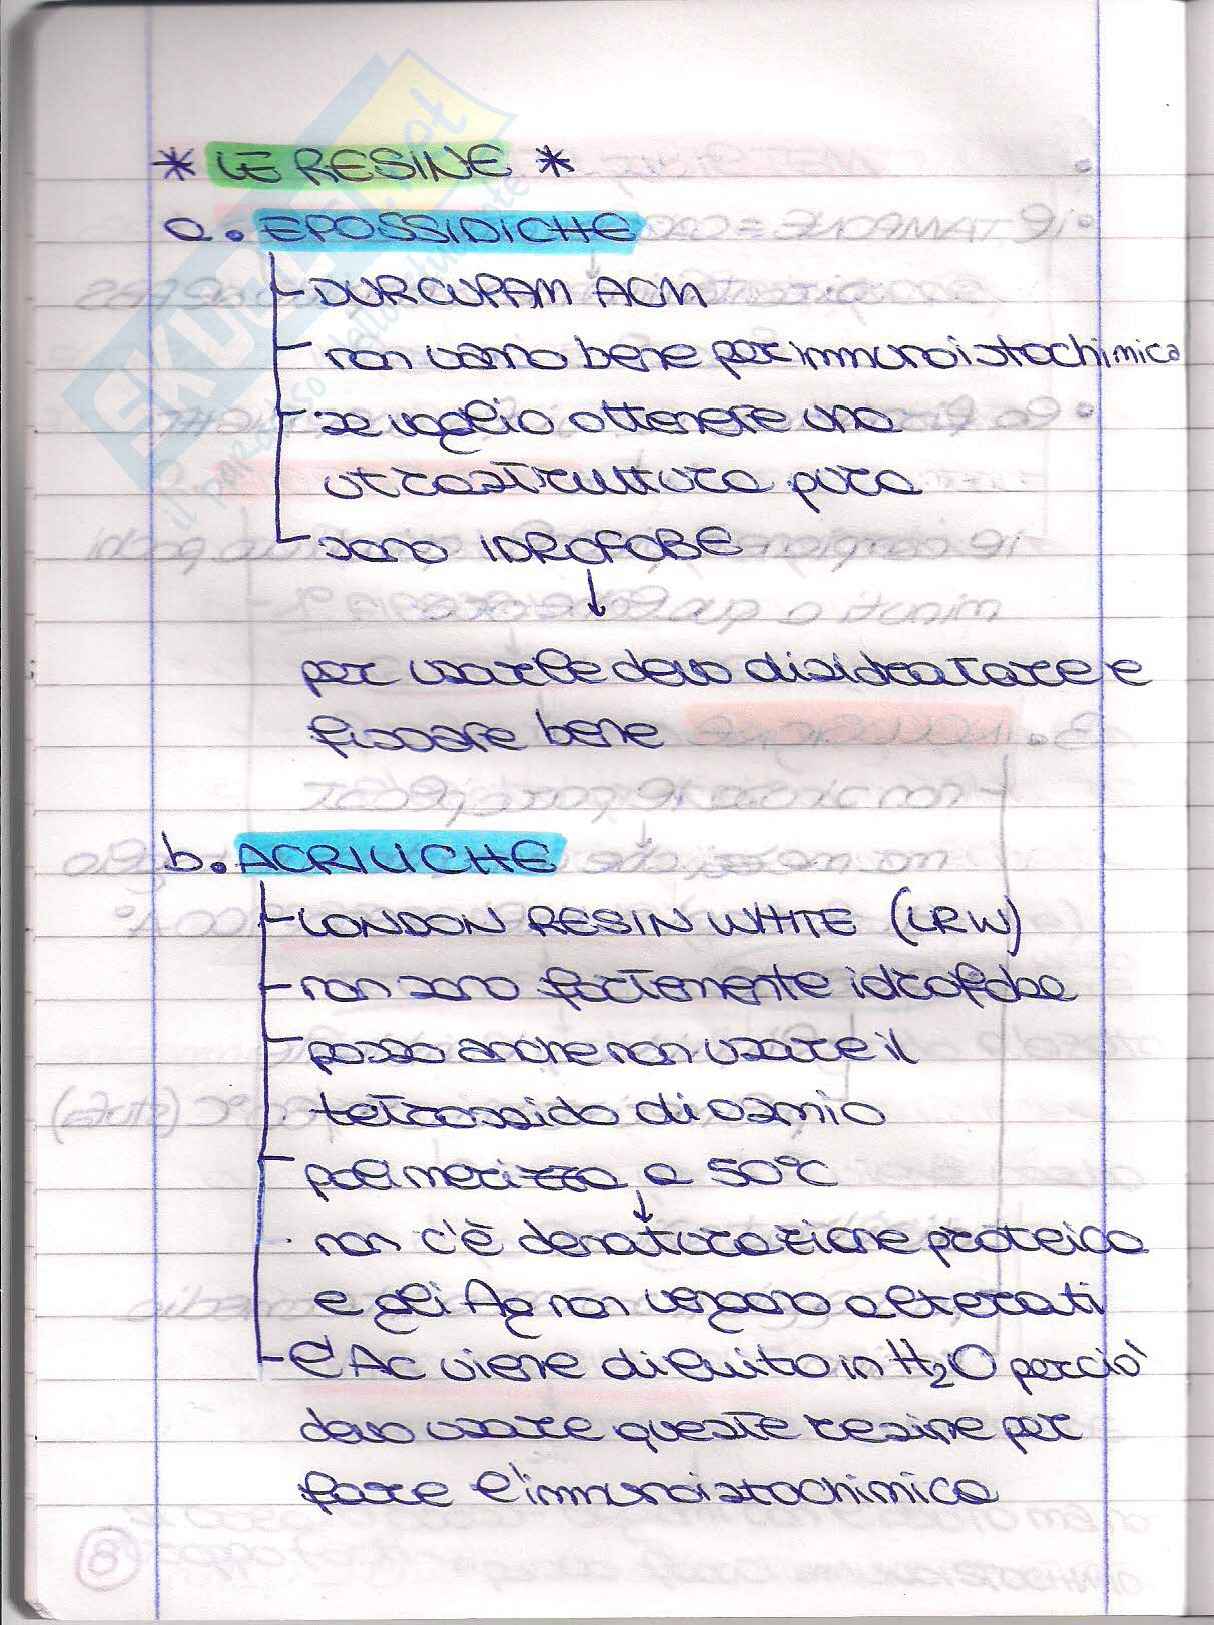 * LE RESINE *
a. EPOSSIDICHE
- DURCUPAM ACM
- non vanno bene per immunoistochimica
- se voglio ottenere una
utrastruttura pura
- sono IDROFOBE
↓
per usarle devo disidratare e
fissare bene
b. ACRILICHE
- LONDON RESIN WHITE (LRW)
- non sono fortemente idrofobe
- posso anche non usare il
tetrossido di osmio
- polimerizza a 50°C
↓
non c'è denaturazione proteica
e gli Ag non vengono alterati
- l'Ac viene diluito in H₂O perciò
devo usare queste resine per
fare l'immunoistochimica
8